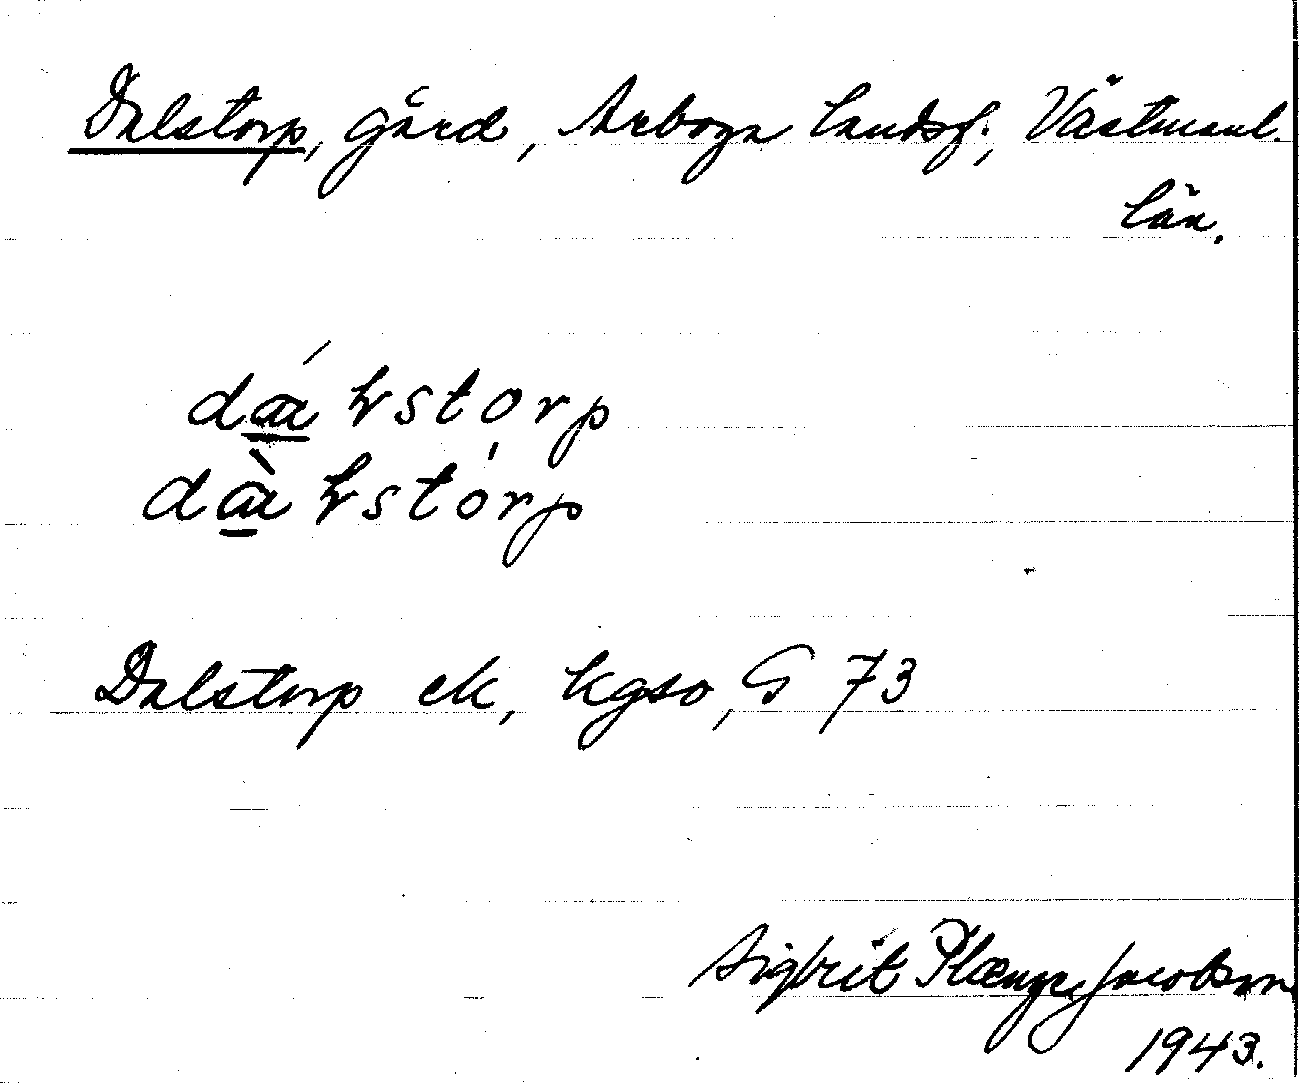 Dalstorp, gård, Arboga landsf., Västmanl.
län.
dá̱ɫstorp
dà̱ɫstórp
Dalstorp ek, kgso, G 73
Sigbrit Plænge Jacobson
1943.